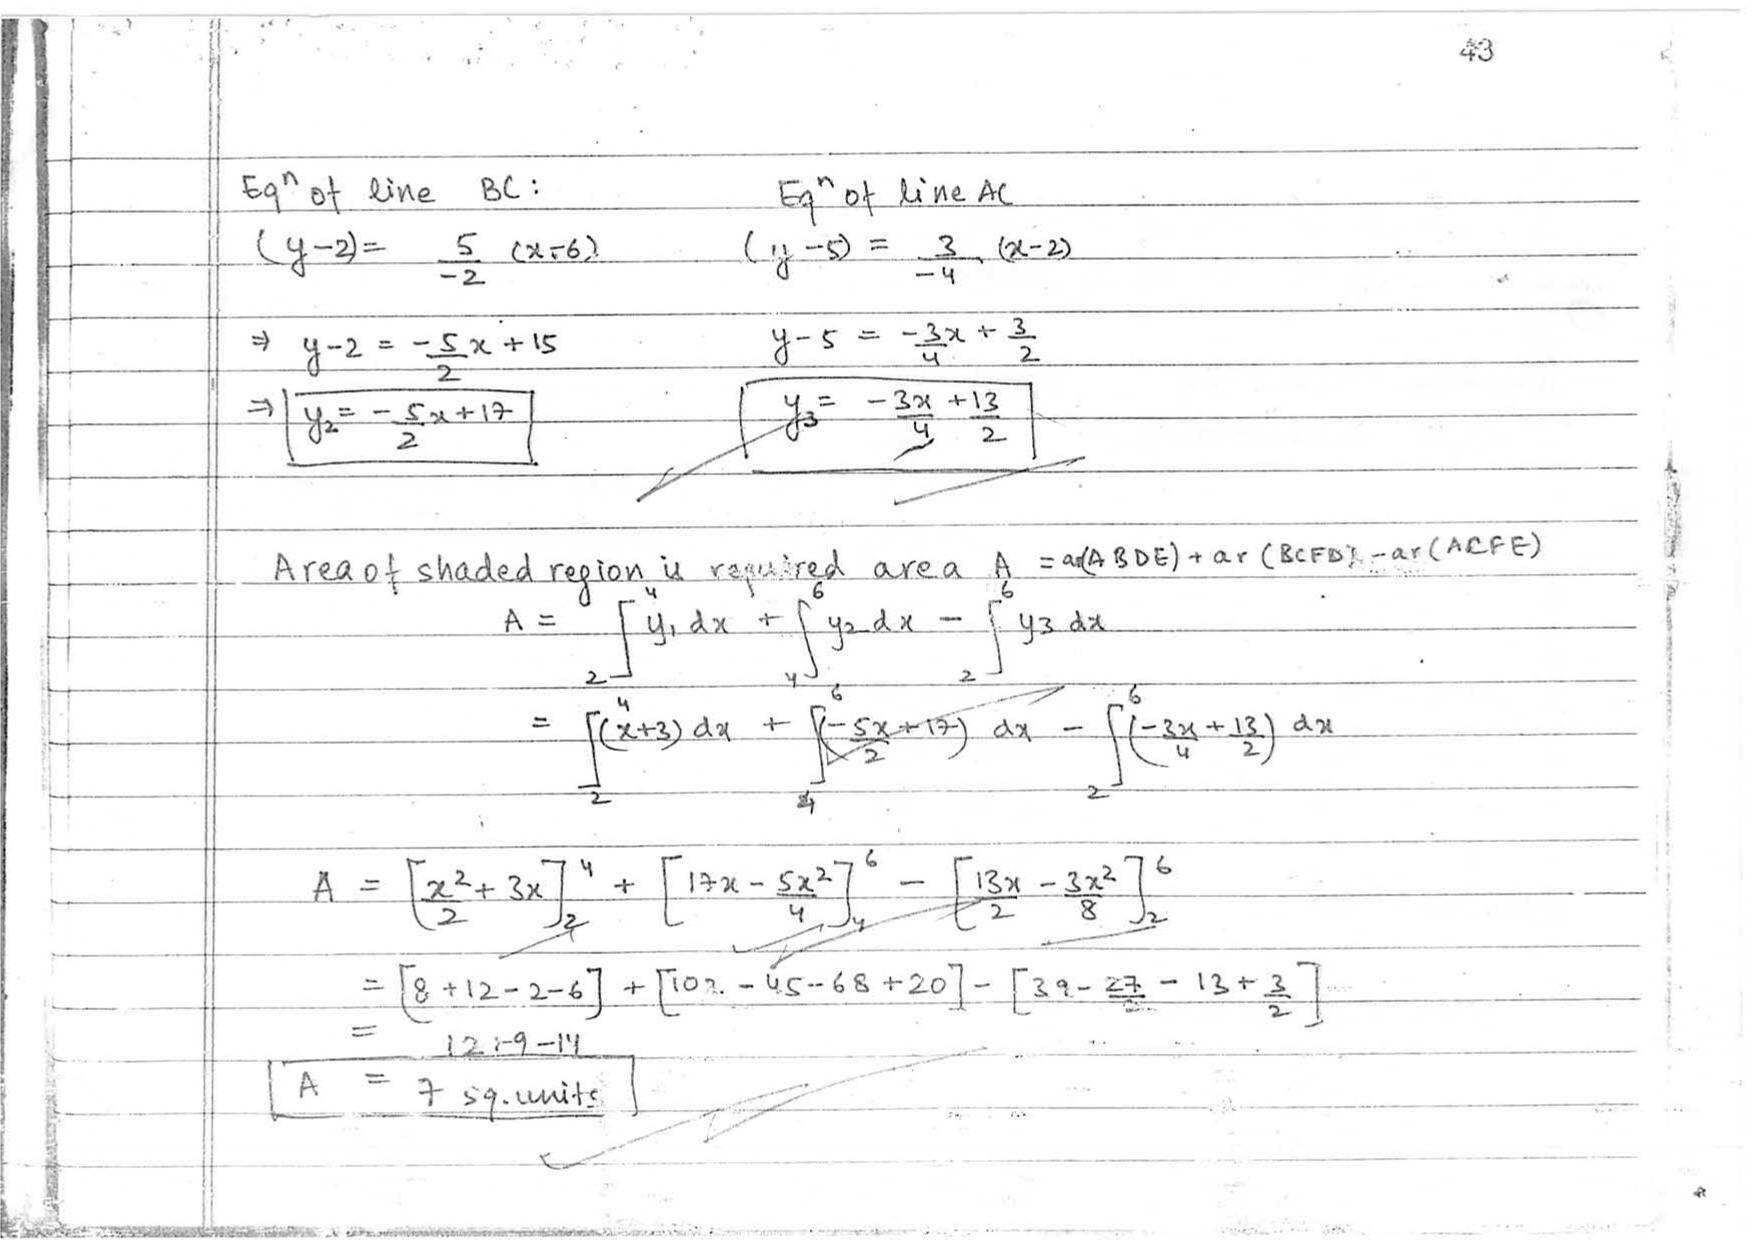 43
Eqⁿ of line BC: Eqⁿ of line AC
(y-2) = 5/-2 (x-6) (y-5) = 3/-4 (x-2)
⇒ y-2 = -5/2 x + 15 y-5 = -3x/4 + 3/2
⇒ y₂ = -5/2 x + 17 y₃ = -3x/4 + 13/2
Area of shaded region is required area A = ar(ABDE) + ar(BCFD) - ar(ACFE)
A = ∫₂⁴ y₁ dx + ∫₄⁶ y₂ dx - ∫₂⁶ y₃ dx
= ∫₂⁴ (x+3) dx + ∫₄⁶ (-5x/2 + 17) dx - ∫₂⁶ (-3x/4 + 13/2) dx
A = [x²/2 + 3x]₂⁴ + [17x - 5x²/4]₄⁶ - [13x/2 - 3x²/8]₂⁶
= [8+12-2-6] + [102-45-68+20] - [39-27/2-13+3/2]
= 12+9-14
A = 7 sq. units